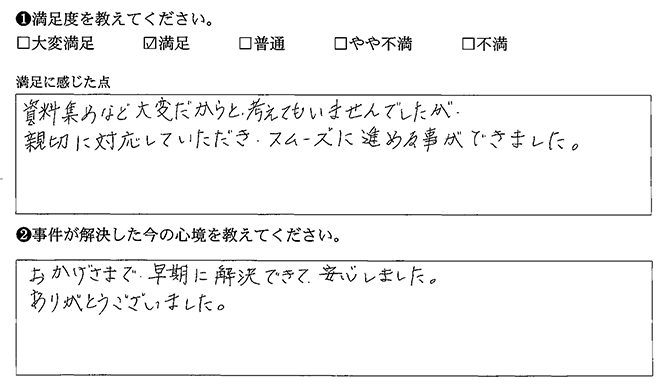 ❶満足度を教えてください。
□大変満足 ☑満足 □普通 □やや不満 □不満
満足に感じた点
資料集めなど大変だからと、考えてもいませんでしたが、
親切に対応していただき、スムーズに進める事ができました。
❷事件が解決した今の心境を教えてください。
おかげさまで、早期に解決できて、安心しました。
ありがとうございました。